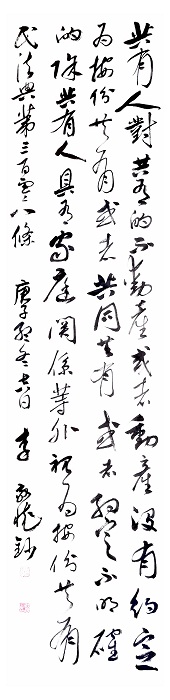 共有人對共有的不動產或者動產沒有約定
為按份共有或者共同共有或者約定不明確
的除共有人具有家庭關係等外視為按份共有
民法典第三百零八條 庚子冬日 李鈔